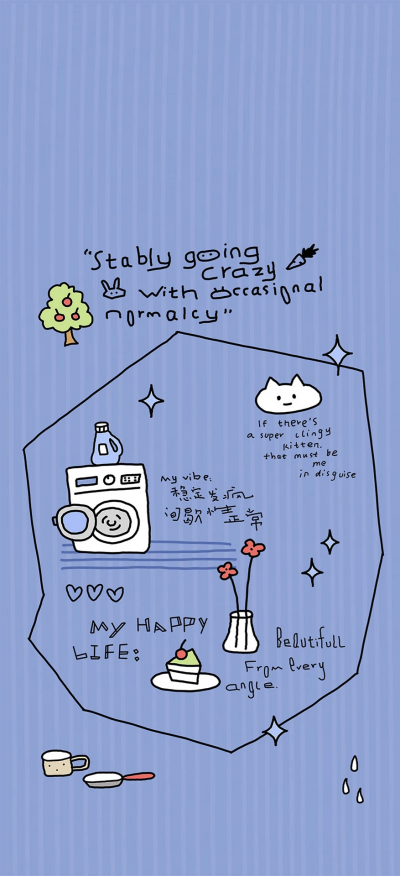 "Stably going
crazy
with occasional
normalcy"
If there's
a super clingy
kitten.
that must be
me
in disguise
my vibe:
稳定发疯
间歇性正常
MY HAPPY
LIFE:
Beautifull
From Every
angle.